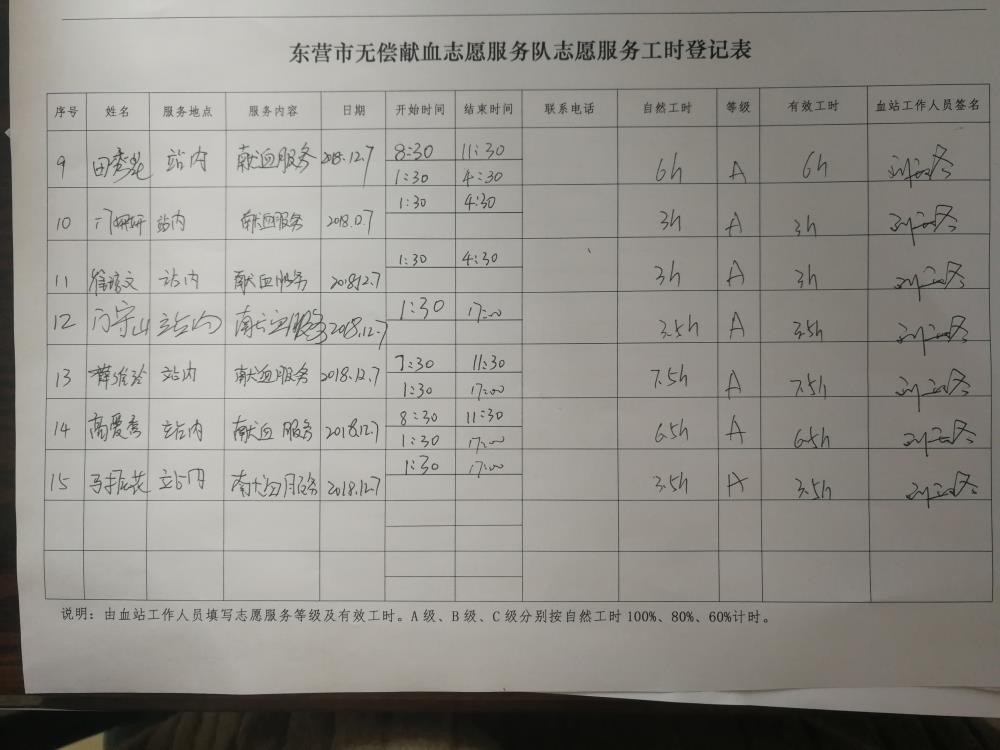 东营市无偿献血志愿服务队志愿服务工时登记表
序号 姓名 服务地点 服务内容 日期 开始时间 结束时间 联系电话 自然工时 等级 有效工时 血站工作人员签名
9 田秀花 站内 献血服务 2018.12.7 8:30 11:30 6h A 6h
1:30 4:30
10 站内 献血服务 2018.0.7 1:30 4:30 3h A 3h
11 站内 献血服务 201812.7 1:30 4:30 3h A 3h
12 门守山 站内 献血服务 2018.12.7 1:30 17:00 3.5h A 3.5h
13 薛维玲 站内 献血服务 2018.12.7 7:30 11:30 7.5h A 7.5h
1:30 17:00
14 高爱秀 站内 献血服务 2018.12.7 8:30 11:30 6.5h A 6.5h
1:30 17:00
15 马振花 站内 献血服务 2018.12.7 1:30 17:00 3.5h A 3.5h
说明：由血站工作人员填写志愿服务等级及有效工时。A 级、B 级、C 级分别按自然工时 100%、80%、60%计时。